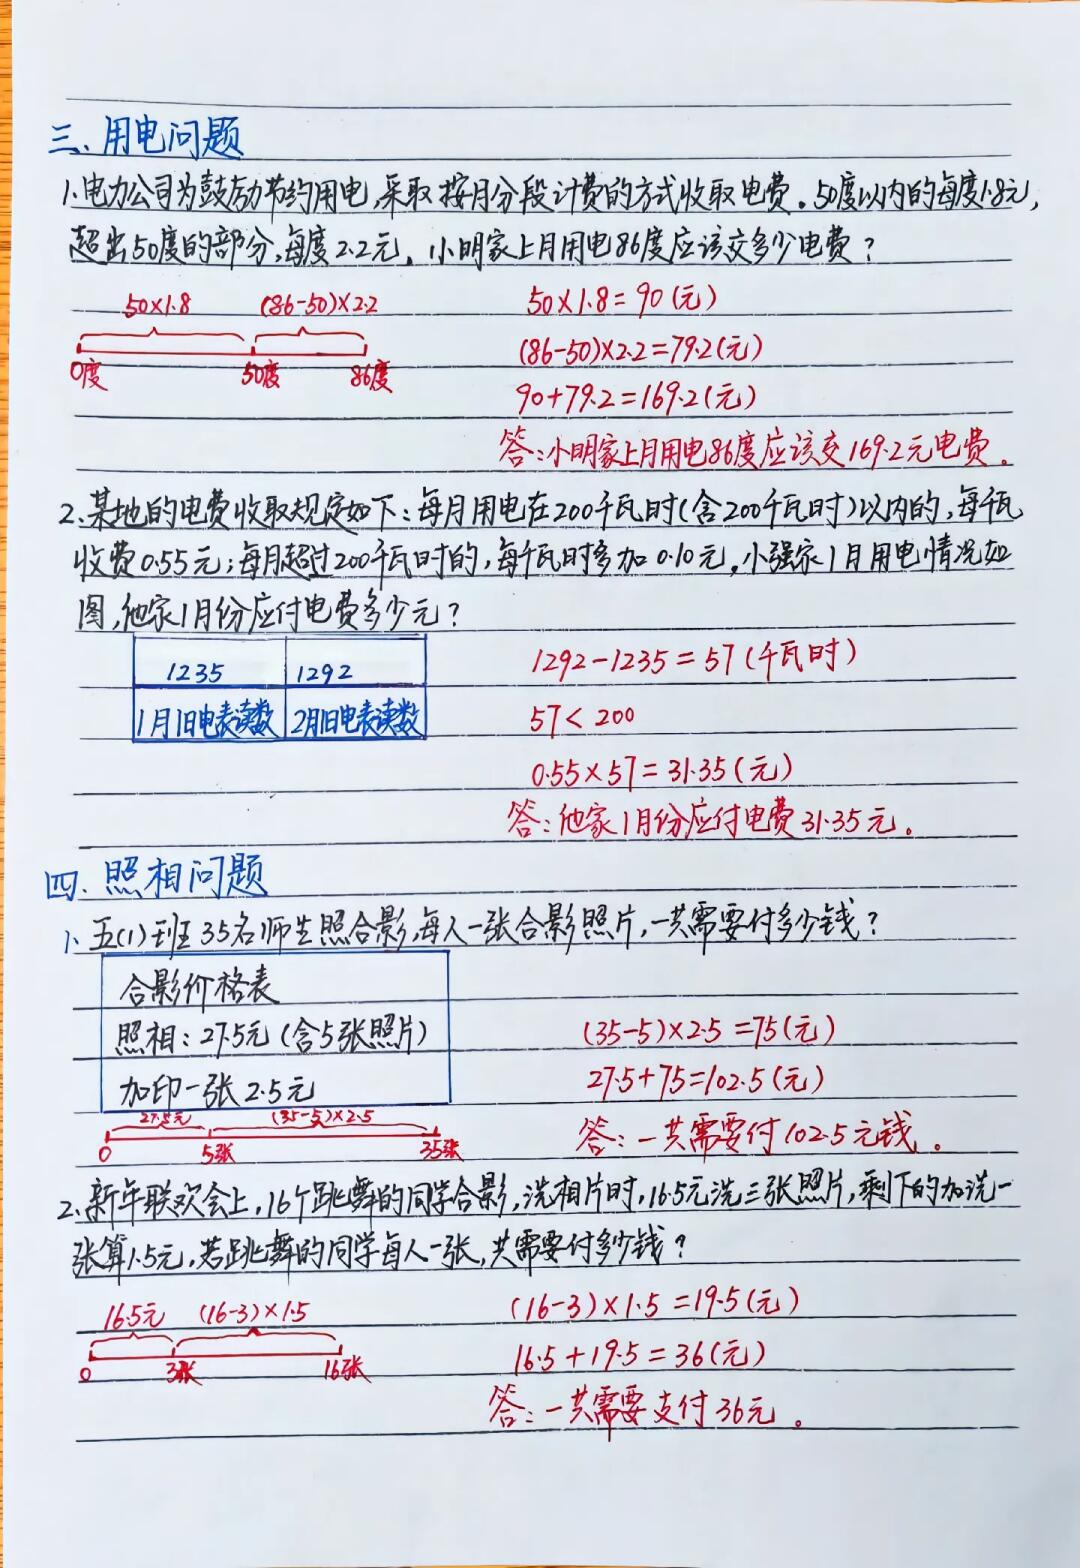 三、用电问题
1.电力公司为鼓励节约用电,采取按月分段计费的方式收取电费。50度以内的每度1.8元,
超出50度的部分,每度2.2元。小明家上月用电86度应该交多少电费?
50×1.8 (86-50)×2.2
0度 50度 86度
50×1.8=90(元)
(86-50)×2.2=79.2(元)
90+79.2=169.2(元)
答:小明家上月用电86度应该交169.2元电费。
2.某地的电费收取规定如下:每月用电在200千瓦时(含200千瓦时)以内的,每千瓦
收费0.55元;每月超过200千瓦时的,每千瓦时多加0.10元。小强家1月用电情况如
图,他家1月份应付电费多少元?
1235 1292
1月1日电表读数 2月1日电表读数
1292-1235=57(千瓦时)
57<200
0.55×57=31.35(元)
答:他家1月份应付电费31.35元。
四、照相问题
1、五(1)班35名师生照合影,每人一张合影照片,一共需要付多少钱?
合影价格表
照相:27.5元(含5张照片)
加印一张2.5元
27.5元 (35-5)×2.5
0 5张 35张
(35-5)×2.5=75(元)
27.5+75=102.5(元)
答:一共需要付102.5元钱。
2.新年联欢会上,16个跳舞的同学合影,洗相片时,16.5元洗三张照片,剩下的加洗一
张算1.5元,若跳舞的同学每人一张,共需要付多少钱?
16.5元 (16-3)×1.5
0 3张 16张
(16-3)×1.5=19.5(元)
16.5+19.5=36(元)
答:一共需要支付36元。